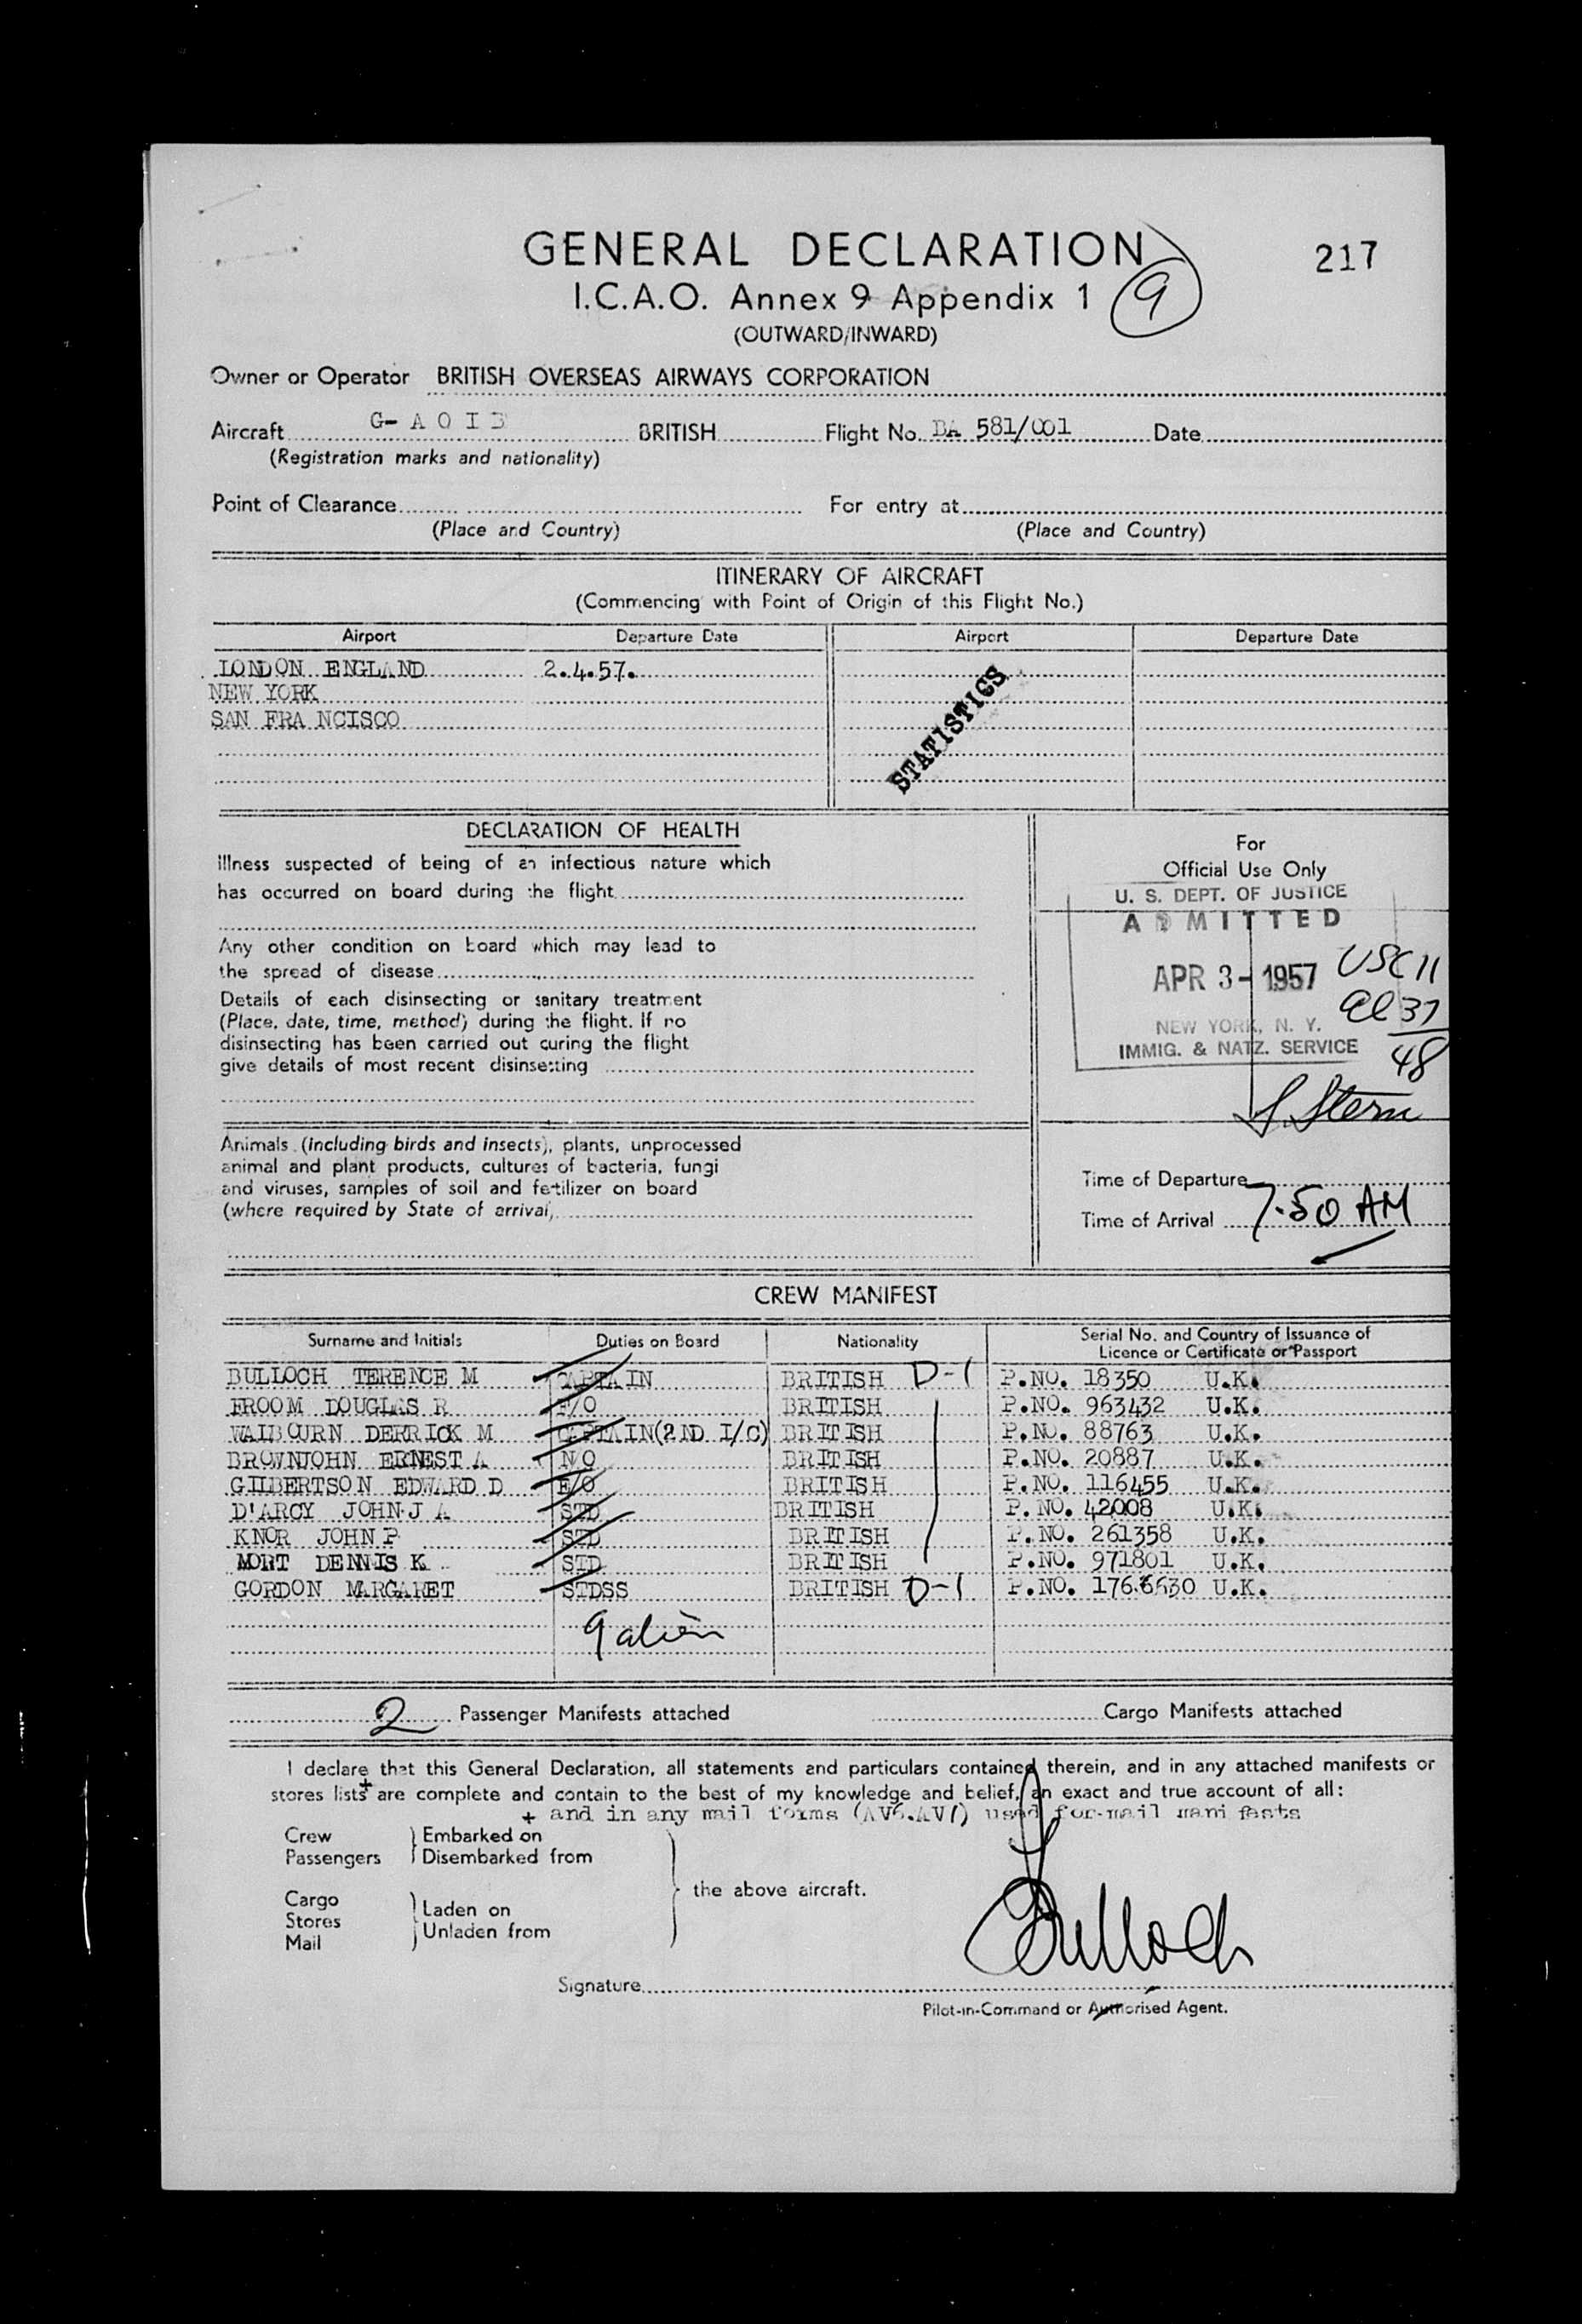 GENERAL DECLARATION
217
I.C.A.O. Annex 9 Appendix 1
9
(OUTWARD/INWARD)
Owner or Operator BRITISH OVERSEAS AIRWAYS CORPORATION
Aircraft G- A O I B BRITISH Flight No. BA 581/001 Date
(Registration marks and nationality)
Point of Clearance For entry at
(Place and Country) (Place and Country)
ITINERARY OF AIRCRAFT
(Commencing with Point of Origin of this Flight No.)
Airport Departure Date Airport Departure Date
LONDON ENGLAND 2.4.57.
NEW YORK
SAN FRA NCISCO
STATISTICS
DECLARATION OF HEALTH
Illness suspected of being of an infectious nature which
has occurred on board during the flight
Any other condition on board which may lead to
the spread of disease
Details of each disinsecting or sanitary treatment
(Place, date, time, method) during the flight. If no
disinsecting has been carried out during the flight
give details of most recent disinsecting
Animals (including birds and insects), plants, unprocessed
animal and plant products, cultures of bacteria, fungi
and viruses, samples of soil and fertilizer on board
(where required by State of arrival)
For
Official Use Only
U. S. DEPT. OF JUSTICE
ADMITTED
APR 3- 1957
NEW YORK, N. Y.
IMMIG. & NATZ. SERVICE
USC 11
al 37
48
S. Stern
Time of Departure
Time of Arrival 7.50 AM
CREW MANIFEST
Surname and Initials Duties on Board Nationality Serial No. and Country of Issuance of
Licence or Certificate or Passport
BULLOCH TERENCE M CAPTAIN BRITISH D-1 P.NO. 18350 U.K.
FROOM DOUGLAS R F/O BRITISH P.NO. 963432 U.K.
WALBOURN DERRICK M CAPTAIN(2ND I/C) BRITISH P.NO. 88763 U.K.
BROWNJOHN ERNEST A N/O BRITISH P.NO. 20887 U.K.
GILBERTSON EDWARD D E/O BRITISH P.NO. 116455 U.K.
D'ARCY JOHN.J A STD BRITISH P.NO. 42008 U.K.
KNOR JOHN P STD BRITISH P.NO. 261358 U.K.
MORT DENNIS K STD BRITISH P.NO. 971801 U.K.
GORDON MARGARET STDSS BRITISH D-1 P.NO. U.K.
9 alien
2 Passenger Manifests attached Cargo Manifests attached
I declare that this General Declaration, all statements and particulars contained therein, and in any attached manifests or
stores lists + are complete and contain to the best of my knowledge and belief, an exact and true account of all:
+ and in any mail forms (AV6.AV7) used for-mail mani fests
Crew
Passengers
Embarked on
Disembarked from
Cargo
Stores
Mail
Laden on
Unladen from
the above aircraft.
Bulloch
Signature
Pilot-in-Command or Authorised Agent.